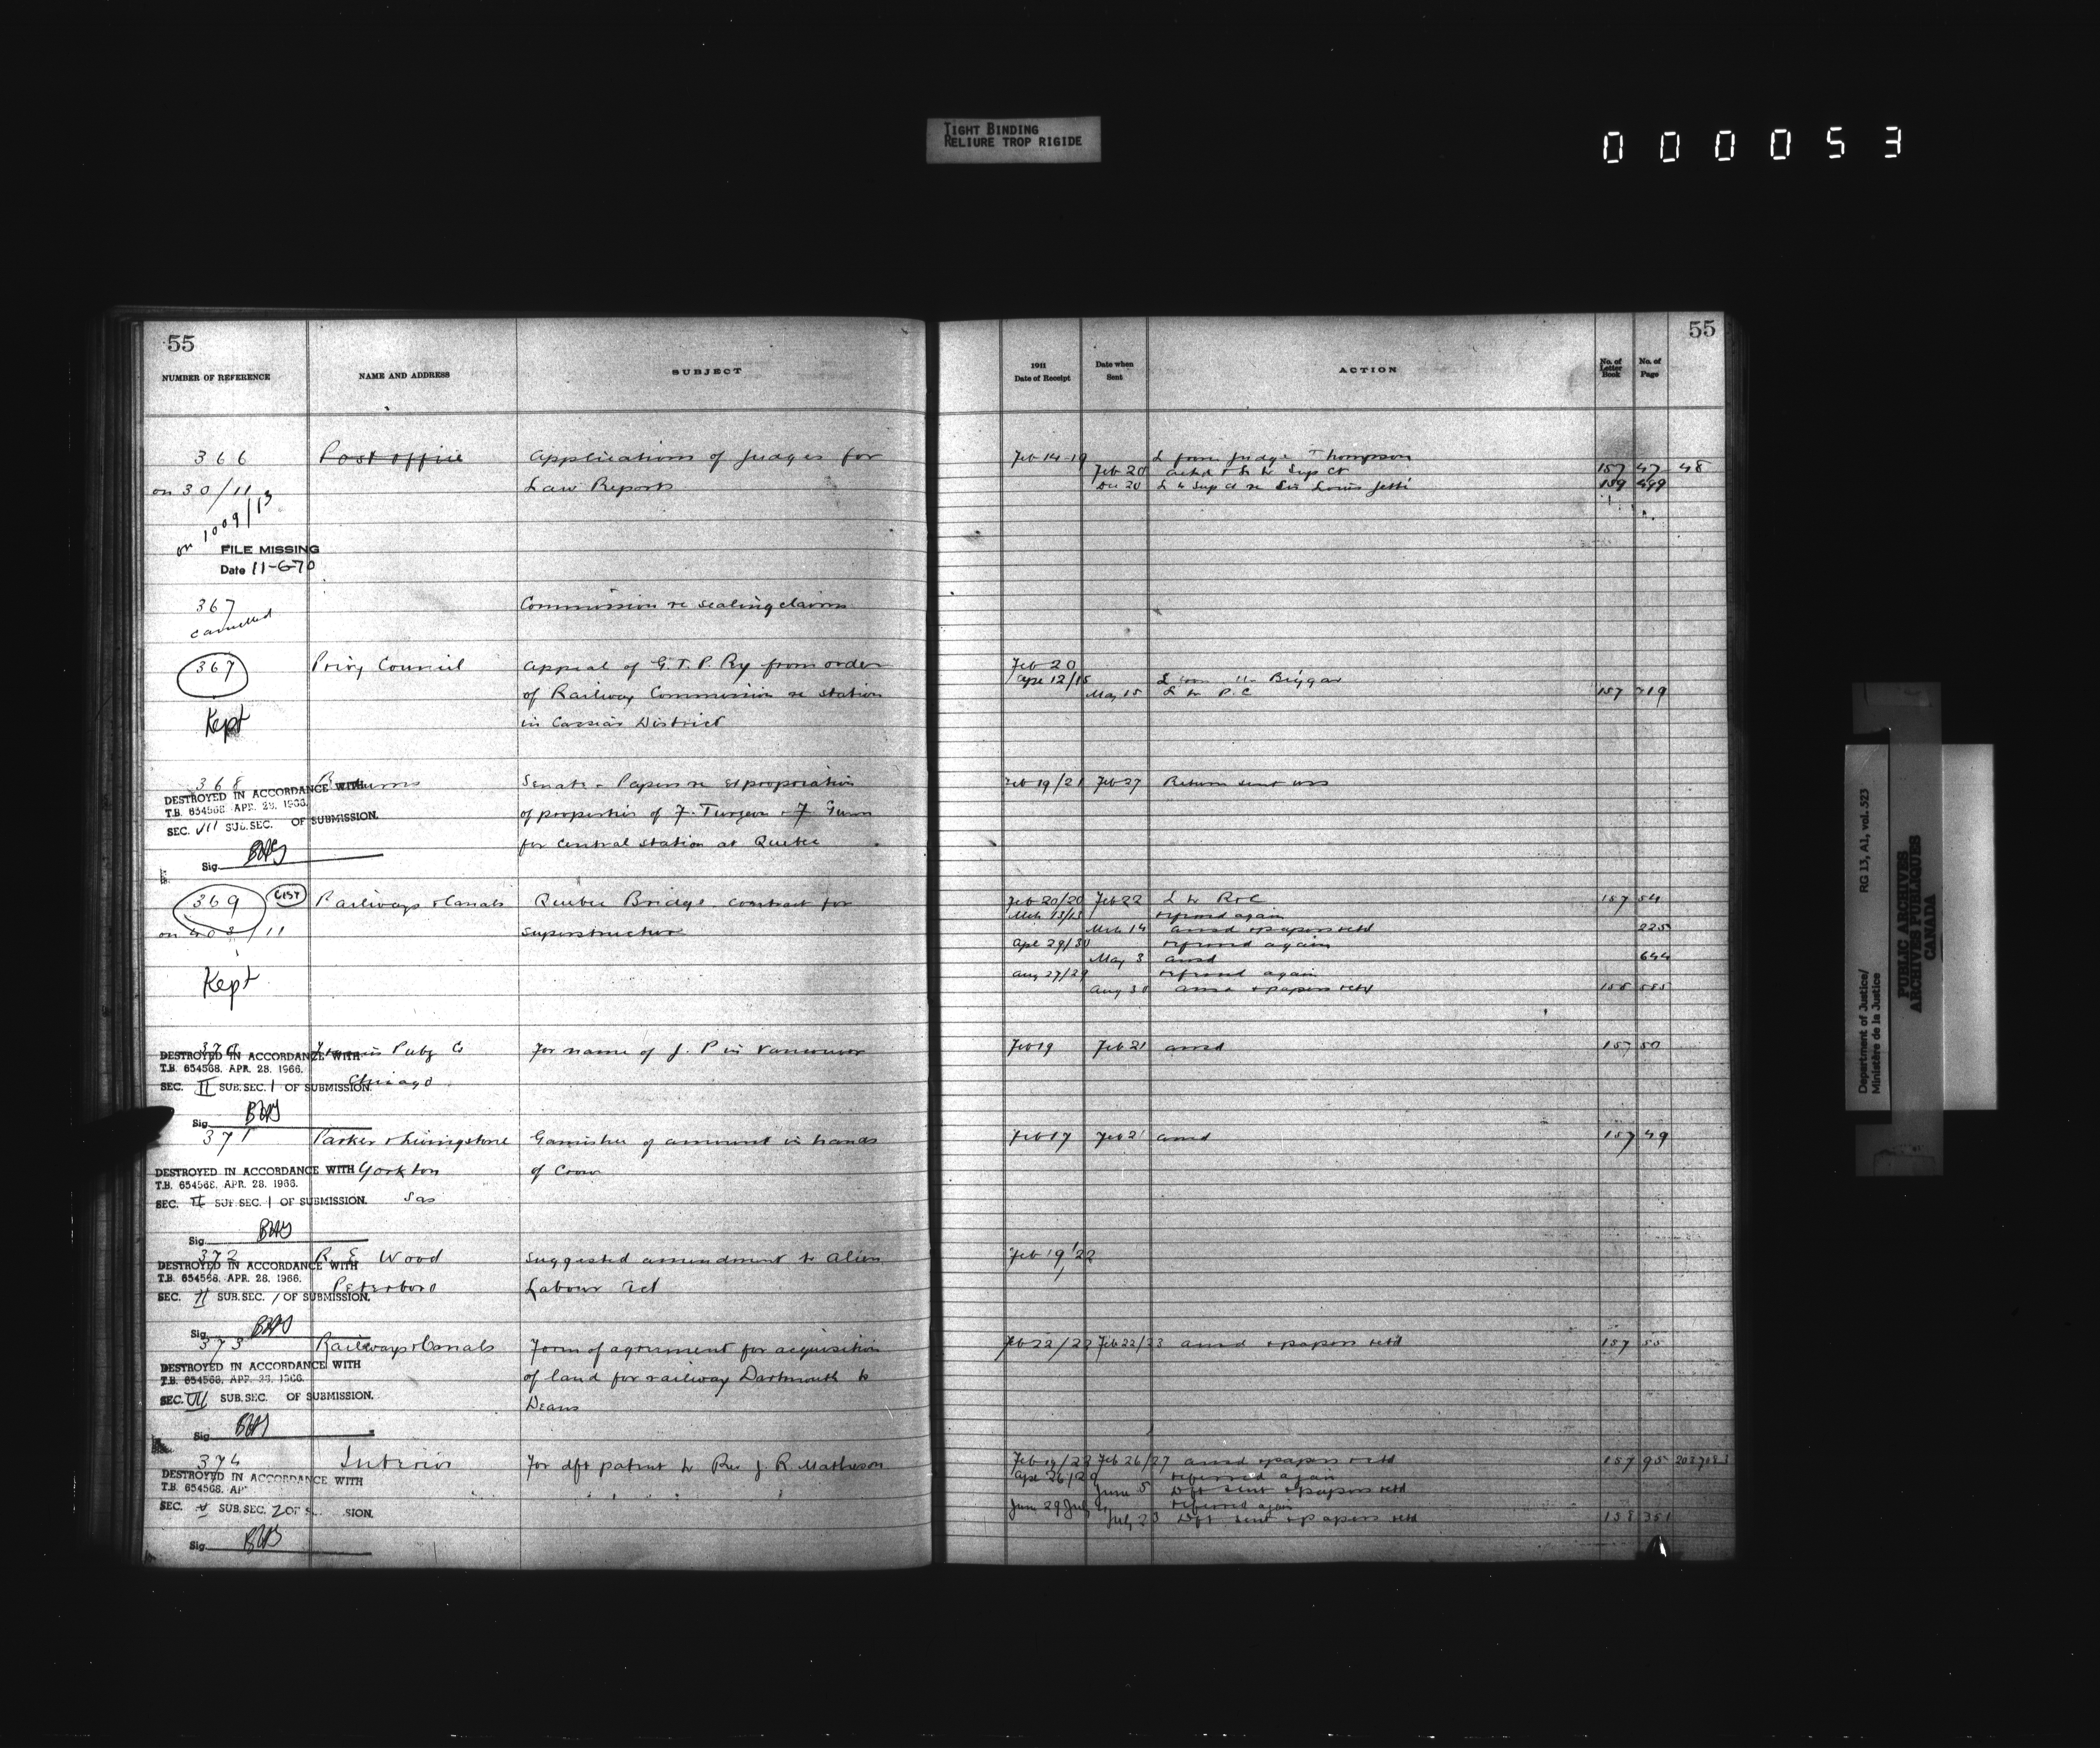 TIGHT BINDING
RELIURE TROP RIGIDE
000053
55
NUMBER OF REFERENCE NAME AND ADDRESS SUBJECT
366 Post office Applications of Judges for
on 30/11 Law Reports
on 1009/13
FILE MISSING
Date 11-6-70
367 Commission re sealing claims
cancelled
367 Privy Council Appeal of G.T.P. Ry from order
of Railway Commission re station
Kept in Cassiar District
368 Returns Senate - Papers re expropriation
DESTROYED IN ACCORDANCE WITH
T.B. 654568 APR. 28. 1966.
of properties of F. Turgeon & F. Gunn
SEC. VII SUB.SEC. OF SUBMISSION.
for central station at Quebec
Sig.
369 Railways & Canals Quebec Bridge. contract for
on 403/11 superstructure
Kept
370 Puby Co For name of J. P in Vancouver
DESTROYED IN ACCORDANCE WITH
T.B. 654568. APR. 28. 1966.
Chicago
SEC. II SUB.SEC. 1 OF SUBMISSION.
Sig.
371 Parker & Livingstone Garnishee of amount in hands
DESTROYED IN ACCORDANCE WITH Yorkton of Crown
T.B. 654568. APR. 28. 1966.
SEC. II SUB.SEC. 1 OF SUBMISSION. Sas
Sig.
372 R. E. Wood Suggested amendment to Alien
DESTROYED IN ACCORDANCE WITH
T.B. 654568. APR. 28. 1966.
Peterboro Labour Act
SEC. II SUB.SEC. 1 OF SUBMISSION.
Sig.
373 Railways & Canals Form of agreement for acquisition
DESTROYED IN ACCORDANCE WITH
T.B. 654568. APR. 28. 1966.
of land for railway Dartmouth to
SEC. VII SUB.SEC. OF SUBMISSION.
Deans
Sig.
374 Interior For dft patent to Rev J. R. Matheson
DESTROYED IN ACCORDANCE WITH
T.B. 654568. AP
SEC. V SUB.SEC. 2 OF S SION.
Sig.
55
1911
Date of Receipt Date when Sent ACTION No. of Letter Book No. of Page
Feb 14-19 L from Judge Thompson
Feb 20 ackd & L to Sup Ct 157 47 48
Dec 20 L to Sup Ct re Sir Louis Jetté 159 499
Feb 20
Apr 12/15 L from Biggar
May 15 L to P.C 157 719
Feb 19/21 Feb 27 Return sent
Feb 20/20 Feb 22 L to R&C 157 54
Mch 13/13 referred again
Mch 14 ansd & papers retd 225
Apr 29/30 referred again
May 3 ansd 644
Aug 27/29 referred again
Aug 30 ansd & papers retd 158 585
Feb 19 Feb 21 ansd 157 50
Feb 17 Feb 21 ansd 157 49
Feb 19/22
Feb 22/22 Feb 22/23 ansd & papers retd 157 55
Feb 19/22 Feb 26/27 ansd & papers retd 157 95
Apr 26/29 referred again
June 5 Dft sent & papers retd
June 29 July 2 referred again
July 23 Dft sent & papers retd 158 351
Department of Justice/
Ministère de la Justice
RG 13, A1, vol. 523
PUBLIC ARCHIVES
ARCHIVES PUBLIQUES
CANADA